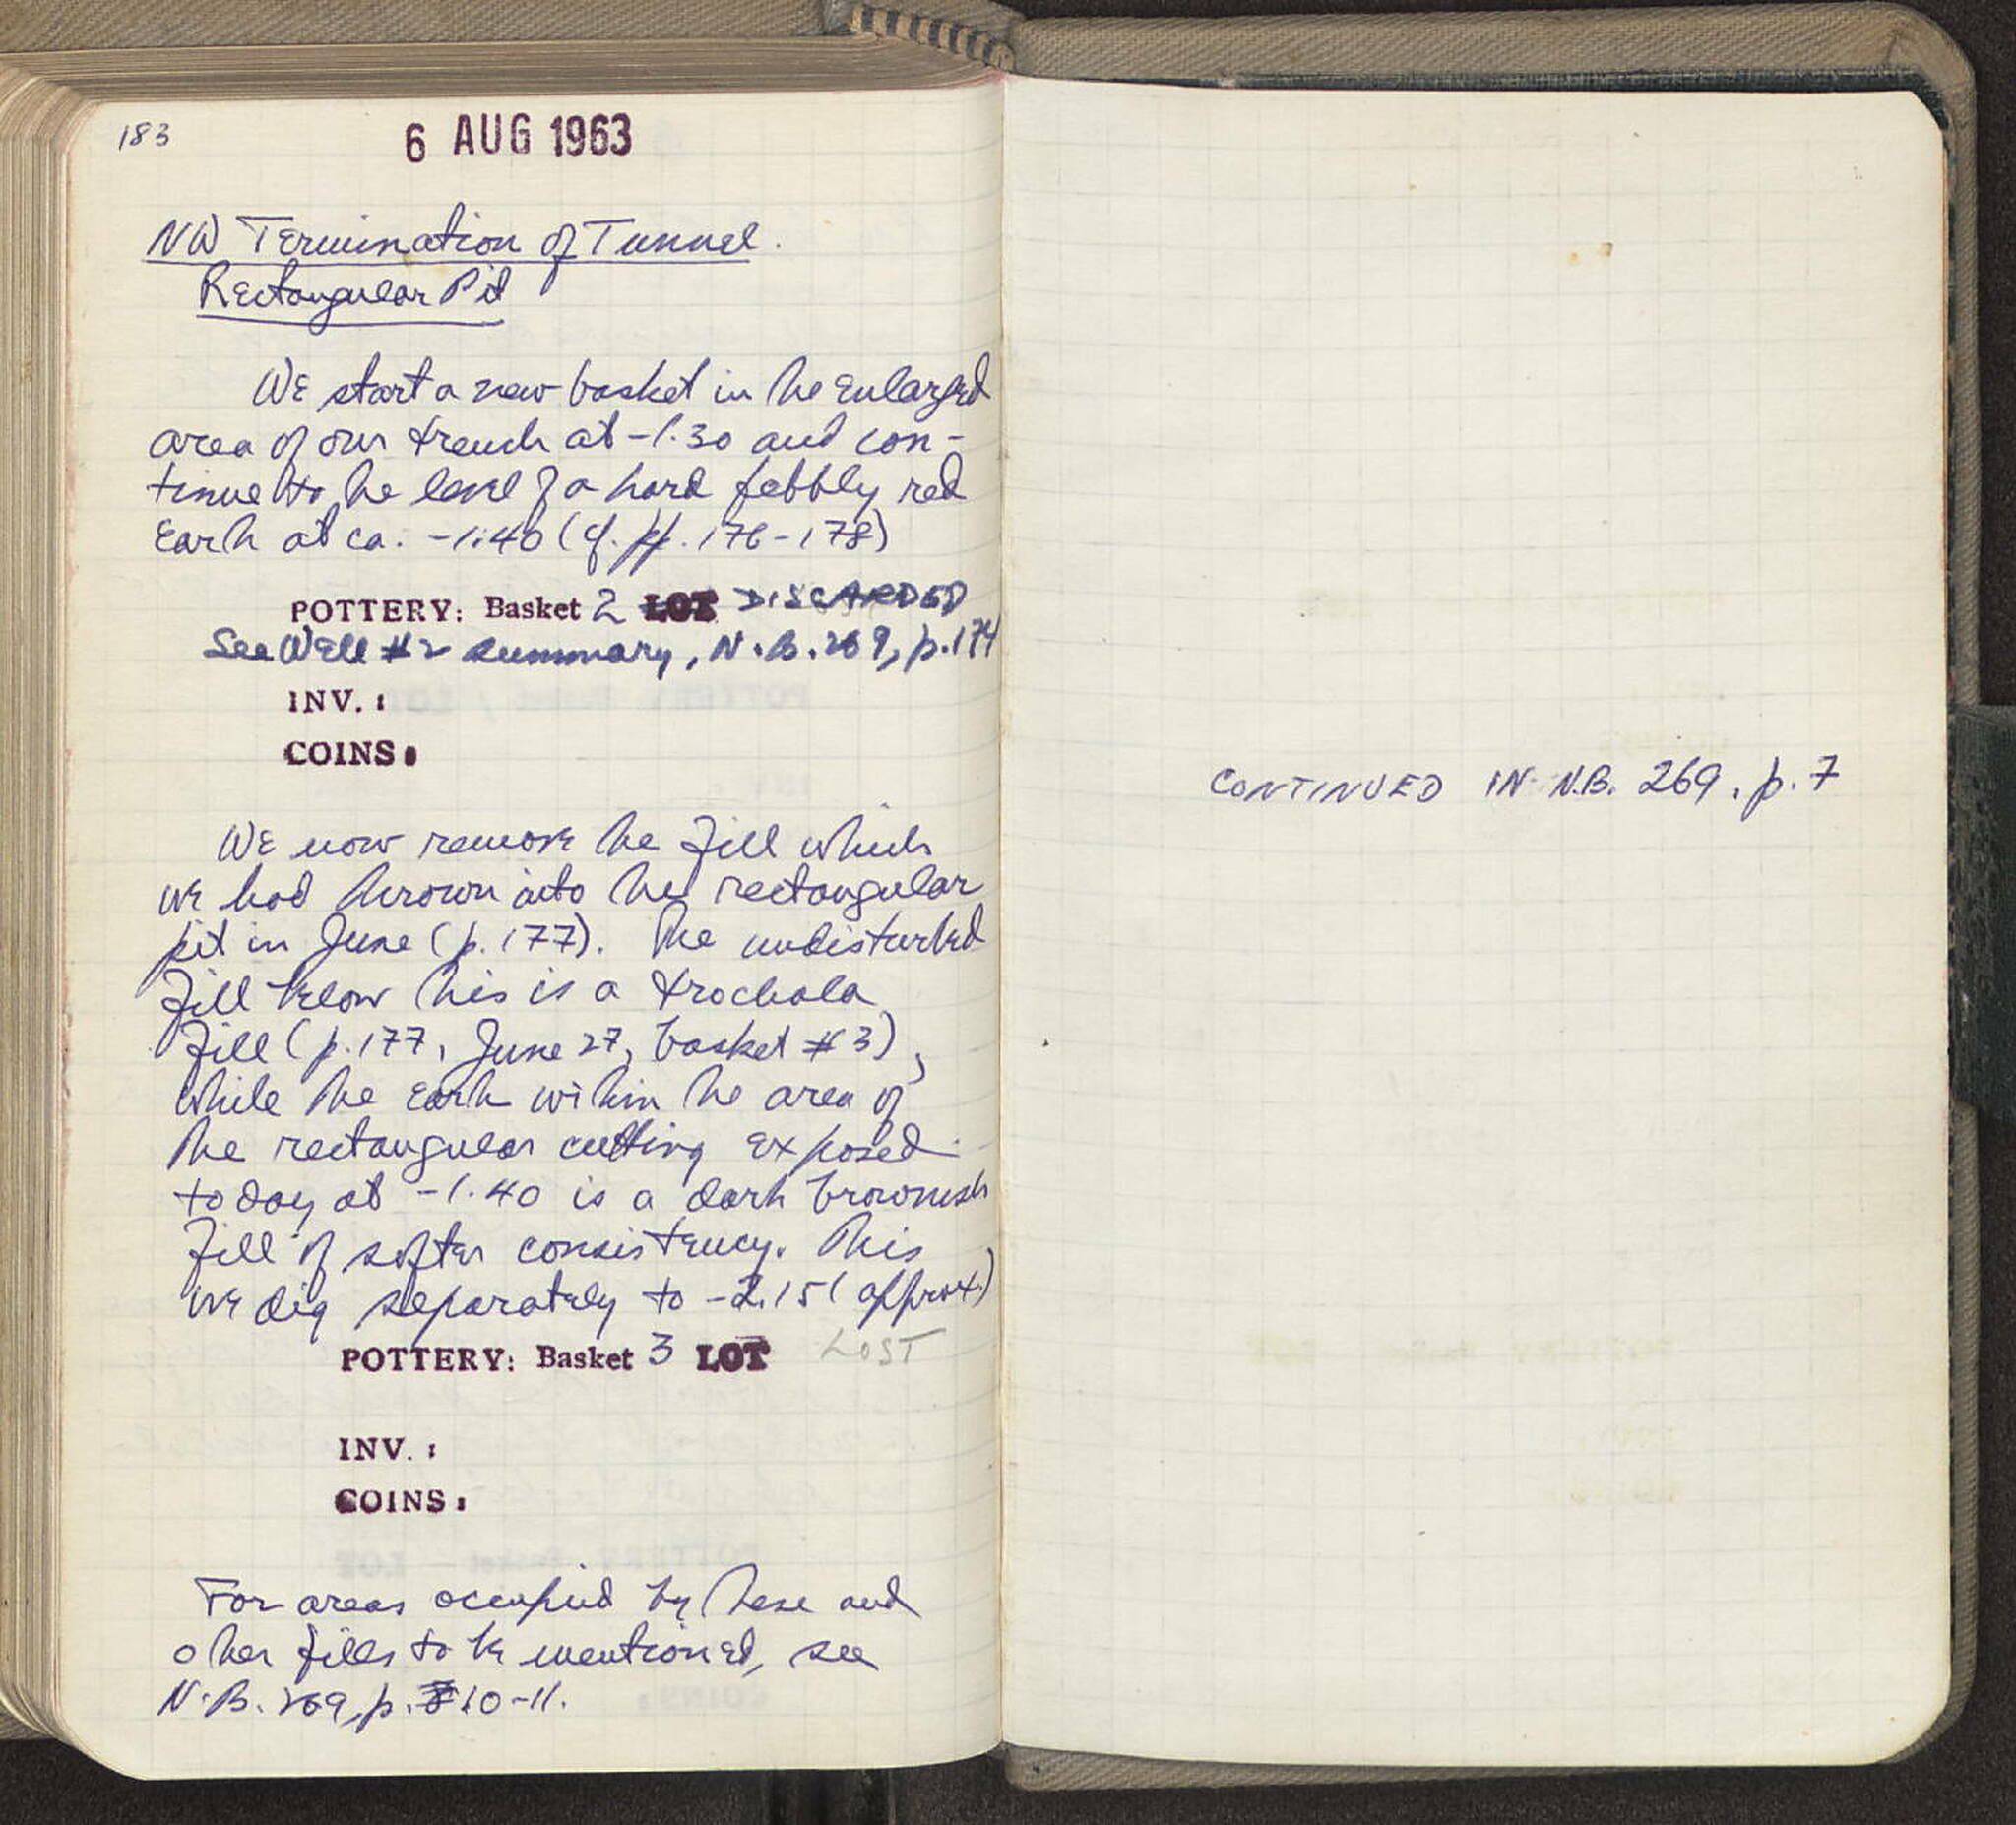 183
6 AUG 1963
NW Termination of Tunnel.
Rectangular Pit
We start a new basket in he enlarged
area of our trench at -1.30 and con-
tinue to he level of a hard pebbly red
Earh at ca. -1.40 (cf. pp. 176-178)
POTTERY: Basket 2 LOT DISCARDED
See Well #2 summary, N.B. 269, p.174
INV. :
COINS:
We now remove he fill which
we had hrown into he rectangular
pit in June (p. 177). The undisturbed
fill below his is a trochala
fill (p. 177, June 27, basket #3),
while he earh wihin he area of
he rectangular cutting exposed
today at -1.40 is a dark brownish
fill of softer consistency. This
we dig separately to -2.15 (approx.)
POTTERY: Basket 3 LOT LOST
INV. :
COINS:
For areas occupied by hese and
oher fills to be mentioned, see
N.B. 269, p. 10-11.
CONTINUED IN N.B. 269, p. 7